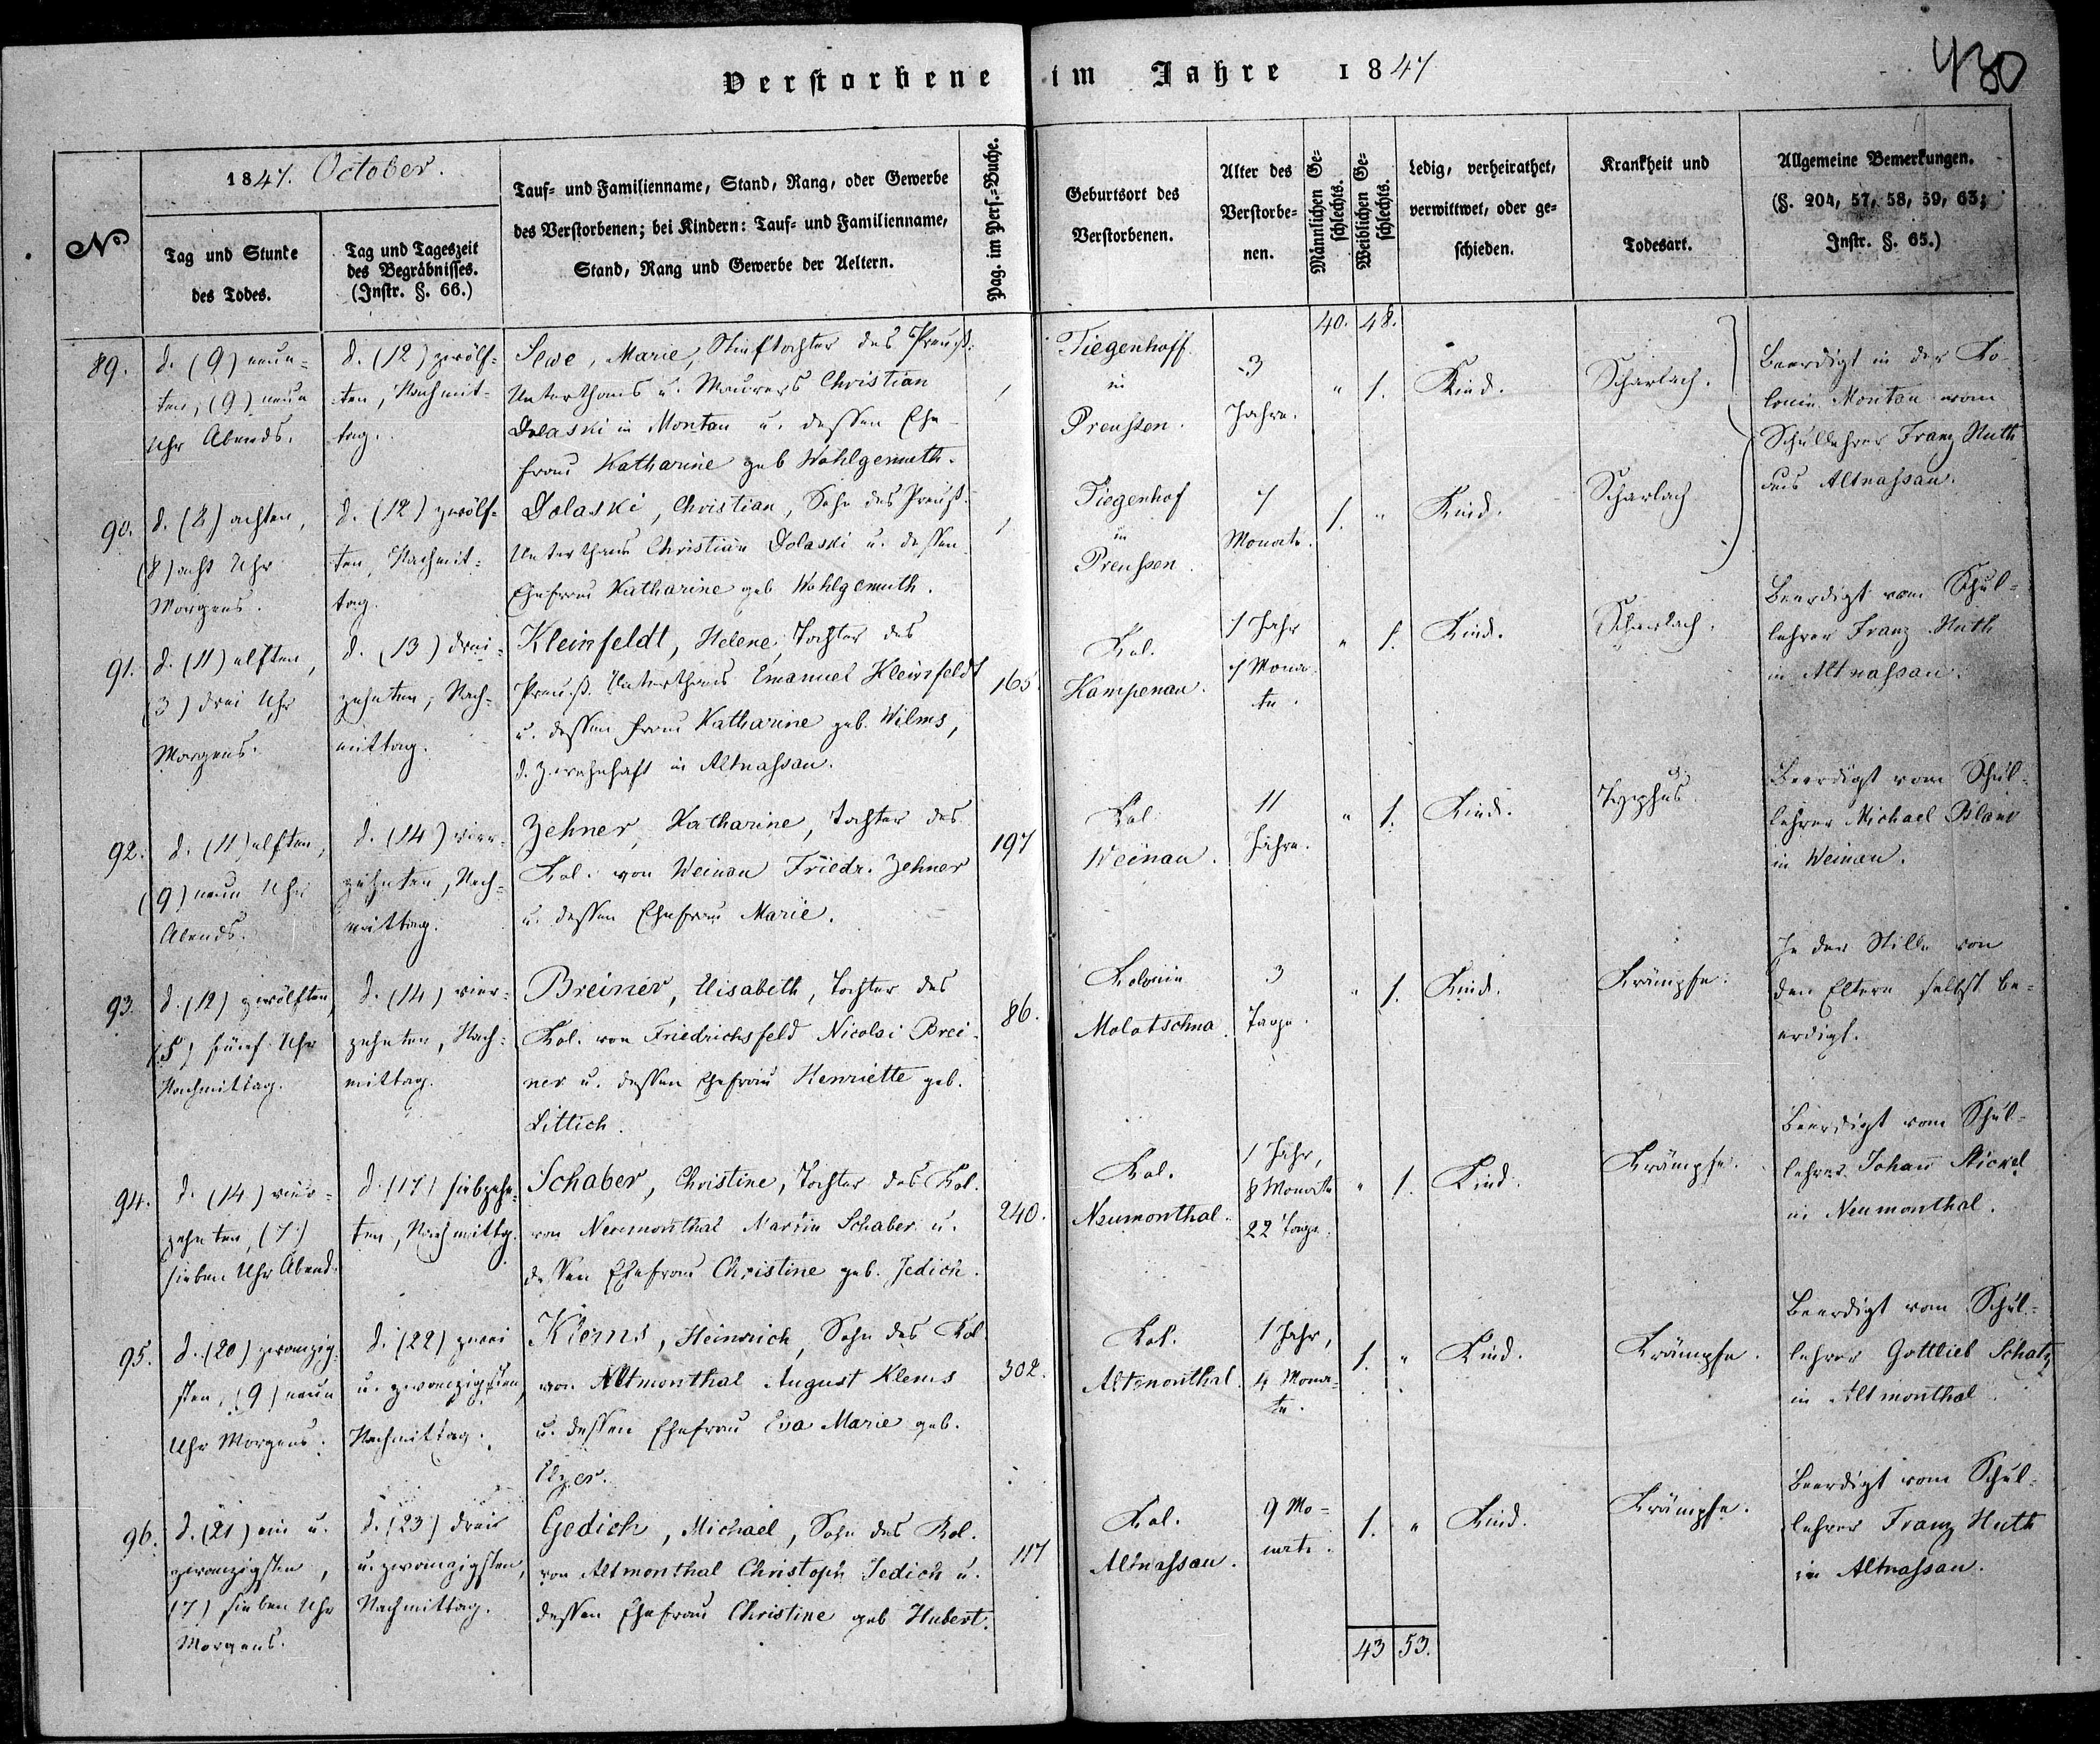 Verstorbene im Jahre 1847
430
1847. October.
No
Tag und Stunde
des Todes.
Tag und Tageszeit
des Begräbnisses.
(Instr. §. 66.)
Tauf- und Familienname, Stand, Rang, oder Gewerbe
des Verstorbenen; bei Kindern: Tauf- und Familienname,
Stand, Rang und Gewerbe der Aeltern.
Pag. im Pers.-Buche.
Geburtsort des
Verstorbenen.
Alter des
Verstorbe-
nen.
Männlichen Ge-
schlechts.
Weiblichen Ge-
schlechts.
Ledig, verheirathet,
verwittwet, oder ge-
schieden.
Krankheit und
Todesart.
Allgemeine Bemerkungen.
(§. 204, 57, 58, 59, 63;
Instr. §. 65.)
40. 48.
89.
d. (9) neun-
ten, (9) neun
Uhr Abends.
d. (12) zwölf-
ten, Nachmit-
tag.
Marie, Stieftochter des Preuß.
Unterthans u. Maurers Christian
Dolaski in Montau u. dessen Ehe-
frau Katharine geb Wohlgemuth.
Tiegenhoff
in
Preußen.
3
Jahre.
" 1.
Kind.
Scharlach.
Beerdigt in der Ko-
lonie Montau vom
Schullehrer Franz Huth
aus Altnaßau.
90.
d. (8) achten,
(8) acht Uhr
Morgens.
d. (12) zwölf-
ten, Nachmit-
tag.
Dolaski, Christian, Sohn des Preuß.
Unterthans Christian Dolaski u. dessen
Ehefrau Katharine geb Wohlgemuth.
Tiegenhof
in
Preußen.
7
Monate.
1. "
Kind.
Scharlach
91.
d. (11) elften,
(3) drei Uhr
Morgens.
d. (13) drei-
zehnten, Nach-
mittag.
Kleinfeldt, Helene, Tochter des
Preuß. Unterthans Emanuel Kleinfeldt
u. dessen Frau Katharine geb. Wilms,
d. Z. wohnhaft in Altnaßau.
165.
Kol.
Kampenau.
1 Jahr
7 Mona-
te.
" 1.
Kind.
Scharlach.
Beerdigt vom Schul-
lehrer Franz Huth
in Altnaßau.
92.
d. (11) elften,
(9) neun Uhr
Abends.
d. (14) vier-
zehnten, Nach-
mittag.
Zehner, Katharine, Tochter des
Kol. von Weinau Friedr. Zehner
u. dessen Ehefrau Marie.
197
Kol.
Weinau.
11
Jahre.
" 1.
Kind.
Typhus.
Beerdigt vom Schul-
lehrer Michael
in Weinau.
93.
d. (12) zwölften,
(5) fünf Uhr
Nachmittag.
d. (14) vier-
zehnten, Nach-
mittag.
Breiner, Elisabeth, Tochter des
Kol. von Friedrichsfeld Nicolai Brei-
ner u. dessen Ehefrau Henriette geb.
Littich.
86.
Kolonie
Molotschna.
3
Tage.
" 1.
Kind.
Krämpfe.
In der Stille von
den Eltern selbst be-
erdigt.
94.
d. (14) vier-
zehnten, (7)
sieben Uhr Abend.
d. (17) siebzehn-
ten, Nachmittg.
Schaber, Christine, Tochter des Kol.
von Neumonthal Martin Schaber u.
dessen Ehefrau Christine geb. Jedich.
240.
Kol.
Neumonthal.
1 Jahr,
8 Monate
22 Tage.
" 1.
Kind.
Krämpfe.
Beerdigt vom Schul-
lehrer Johann Stickel
in Neumonthal.
95.
d. (20) zwanzig-
sten, (9) neun
Uhr Morgens.
d. (22) zwei
u. zwanzigsten,
Nachmittag.
Klems, Heinrich, Sohn des Kol
von Altmonthal August Klems
u. dessen Ehefrau Eva Marie geb.
Elzer.
302.
Kol.
Altmonthal.
1 Jahr,
4 Mona-
te.
1. "
Kind.
Krämpfe.
Beerdigt vom Schul-
lehrer Gottlieb Schatz
in Altmonthal.
96.
d. (21) ein u.
zwanzigsten,
(7) sieben Uhr
Morgens.
d. (23) drei
u. zwanzigsten,
Nachmittag.
Gedich, Michael, Sohn des Kol.
von Altmonthal Christoph Jedich u.
dessen Ehefrau Christine geb Hubert.
117
Kol.
Altnaßau.
9 Mo-
nate.
1. "
Kind.
Krämpfe.
Beerdigt vom Schul-
lehrer Franz Huth
in Altnaßau.
43 53.